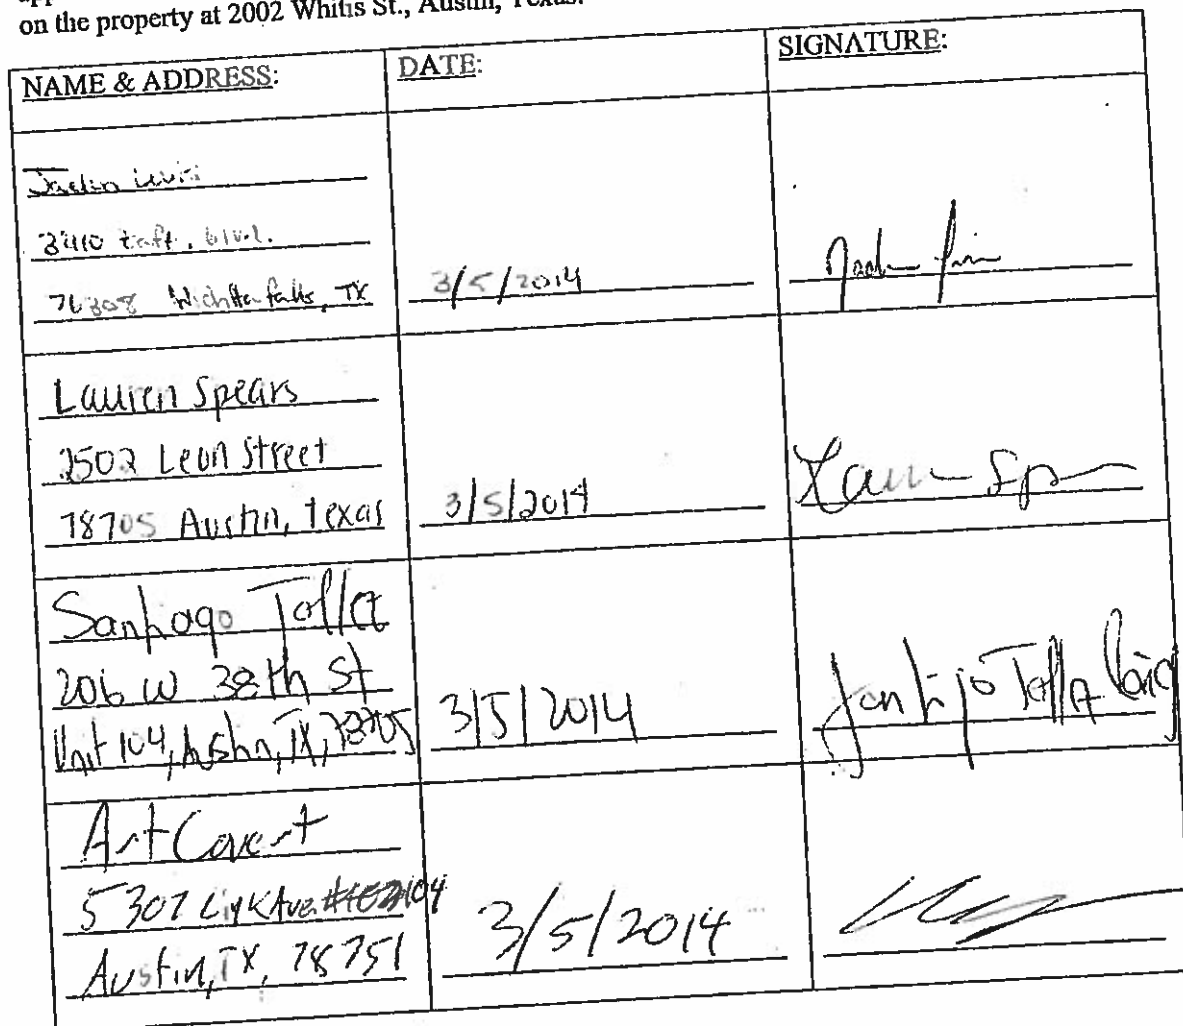 on the property at 2002 Whitis St., Austin, Texas.
NAME & ADDRESS:
DATE:
SIGNATURE:
3410 taft. blvd.
76308 Wichita falls, TX
3/5/2014
Lauren Spears
2502 Leon Street
78705 Austin, Texas
3/5/2014
Lauren Sp
Santiago Tolla
206 W 38th St
Unit 104, Austin, TX, 78705
3/5/2014
Art Covert
5307 Link Ave. #104
Austin, TX, 78751
3/5/2014